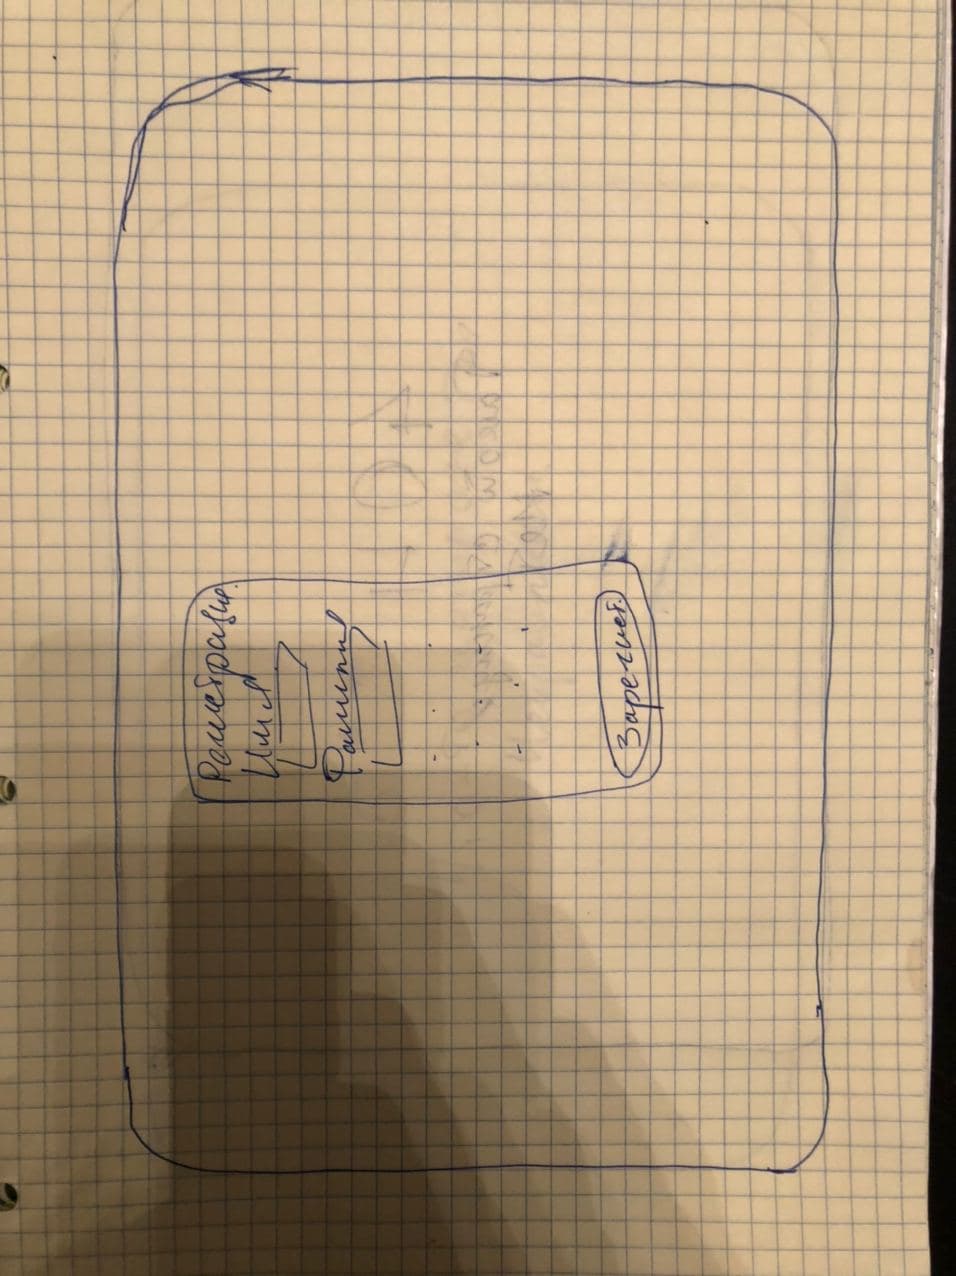 Регистрация.
Имя
Фамилия
Зарегист.